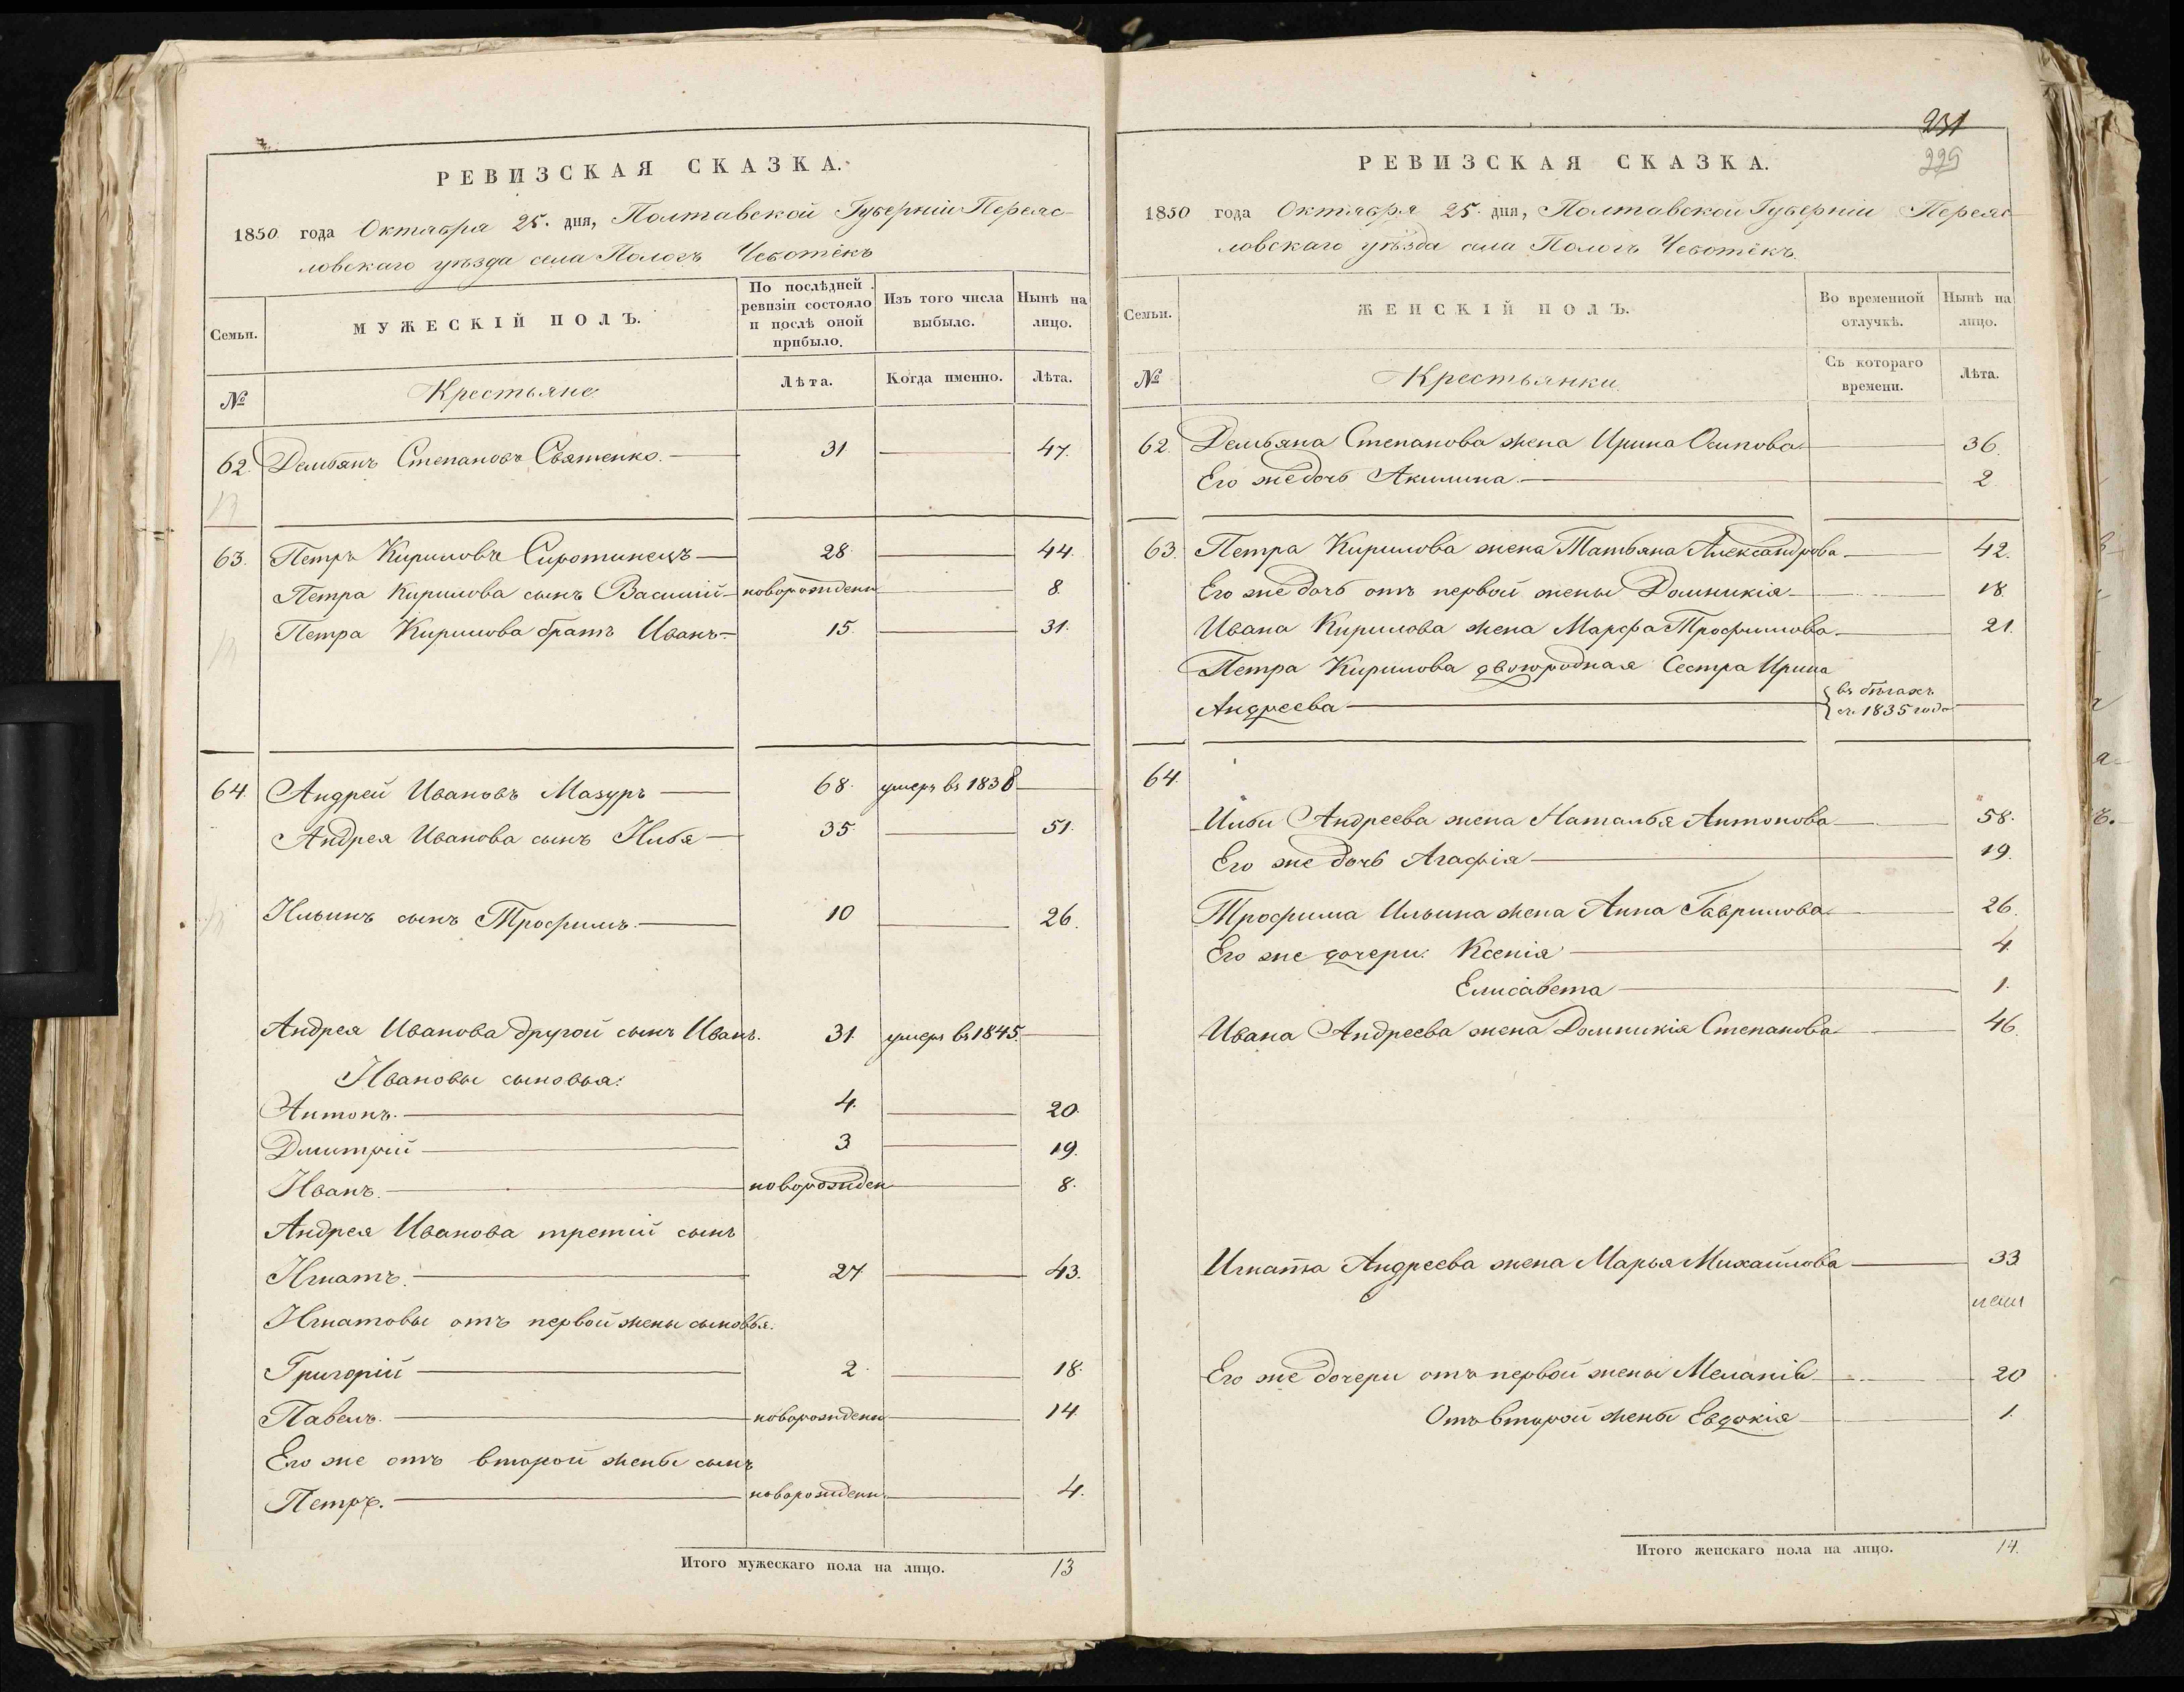 РЕВИЗСКАЯ СКАЗКА.
1850 года Октября 25. дня, Полтавской Губерніи Переяс-
ловскаго уѣзда села Пологъ Чеботѣкъ
Семьи.
МУЖЕСКІЙ ПОЛЪ.
По послѣдней ревизіи состояло и послѣ оной прибыло.
Изъ того числа выбыло.
Нынѣ на лицо.
№ Крестьяне. Лѣта. Когда именно. Лѣта.
62. Демьянъ Степановъ Святенко. 31 47.
63. Петръ Кириловъ Сиротинецъ 28 44.
Петра Кирилова сынъ Василій новорожденн 8.
Петра Кирилова братъ Иванъ 15. 31.
64. Андрей Ивановъ Мазуръ 68. умеръ въ 1838
Андрея Иванова сынъ Илья 35. 51.
Ильинъ сынъ Трофимъ. 10 26.
Андрея Иванова другой сынъ Иванъ. 31. умеръ въ 1845.
Ивановы сыновья:
Антонъ. 4. 20.
Дмитрій 3 19.
Иванъ. новорожден 8.
Андрея Иванова третій сынъ
Игнатъ. 27 43.
Игнатовы отъ первой жены сыновья.
Григорій 2. 18.
Павелъ. новорожденн 14.
Его же отъ второй жены сынъ
Петръ. новорожденн. 4.
Итого мужескаго пола на лицо. 13
231
225
РЕВИЗСКАЯ СКАЗКА.
1850 года Октября 25. дня, Полтавской Губерніи Переяс-
ловскаго уѣзда села Пологъ Чеботѣкъ.
Семьи.
ЖЕНСКІЙ ПОЛЪ.
Во временной отлучкѣ.
Нынѣ на лицо.
№ Крестьянки. Съ котораго времени. Лѣта.
62. Демьяна Степанова жена Ирина Осипова 36.
Его же дочь Акилина. 2.
63. Петра Кирилова жена Татьяна Александрова 42.
Его же дочь отъ первой жены Домникія 18.
Ивана Кирилова жена Марфа Трофимова 21.
Петра Кирилова двоюродная Сестра Ирина
Андреева въ бѣгахъ съ 1835 года
64.
Ильи Андреева жена Наталья Антонова 58.
Его же дочь Агафія 19.
Трофима Ильина жена Анна Гаврилова 26.
Его же дочери: Ксенія 4.
Елисавета 1.
Ивана Андреева жена Домникія Степанова 46.
Игната Андреева жена Марья Михайлова 33
Его же дочери отъ первой жены Меланія 20
Отъ второй жены Евдокія 1.
Итого женскаго пола на лицо. 14.